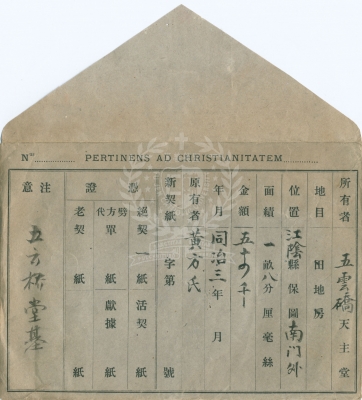 No PERTINENS AD CHRISTIANITATEM
所有者 五雲橋 天主堂
地目 田地房
位置 江陰縣 保圖 南門外
面積 一畝八分 厘毫絲
金額
年月 同治三年 月
原有者 黃方氏
新契紙 字第 號
證 憑
絕契 一紙 活契 紙
代方單 紙 獻據 紙
老契 紙 紙
注意
五方 堂基